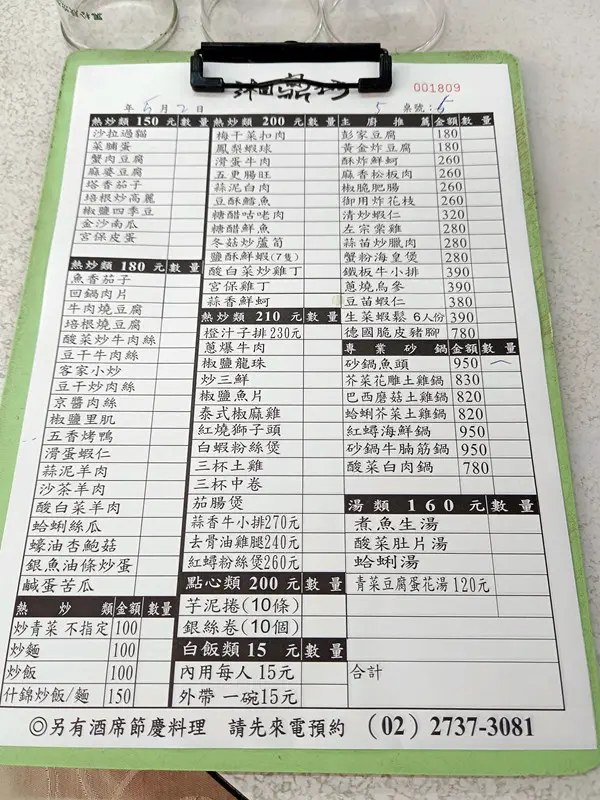 湘鼎坊
001809
年 5 月 2 日
5 桌號：6
熱炒類 150 元 數量
沙拉過貓
菜脯蛋
蟹肉豆腐
麻婆豆腐
塔香茄子
培根炒高麗
椒鹽四季豆
金沙南瓜
宮保皮蛋
熱炒類 180 元 數量
魚香茄子
回鍋肉片
牛肉燒豆腐
培根燒豆腐
酸菜炒牛肉絲
豆干牛肉絲
客家小炒
豆干炒肉絲
京醬肉絲
椒鹽里肌
五香烤鴨
滑蛋蝦仁
蒜泥羊肉
沙茶羊肉
酸白菜羊肉
蛤蜊絲瓜
蠔油杏鮑菇
銀魚油條炒蛋
鹹蛋苦瓜
熱炒類 金額 數量
炒青菜 不指定 100
炒麵 100
炒飯 100
什錦炒飯/麵 150
熱炒類 200 元 數量
梅干菜扣肉
鳳梨蝦球
滑蛋牛肉
五更腸旺
蒜泥白肉
豆酥鱈魚
糖醋咕咾肉
糖醋鮮魚
冬菇炒蘆筍
鹽酥鮮蝦(7隻)
酸白菜炒雞丁
宮保雞丁
蒜香鮮蚵
熱炒類 210 元 數量
橙汁子排230元
蔥爆牛肉
椒鹽龍珠
炒三鮮
椒鹽魚片
泰式椒麻雞
紅燒獅子頭
白蝦粉絲煲
三杯土雞
三杯中卷
茄腸煲
蒜香牛小排270元
去骨油雞腿240元
紅蟳粉絲煲260元
點心類 200 元 數量
芋泥捲(10條)
銀絲卷(10個)
白飯類 15 元 數量
內用每人 15元
外帶 一碗15元
主廚推薦 金額 數量
彭家豆腐 180
黃金炸豆腐 180
酥炸鮮蚵 260
麻香松板肉 260
椒脆肥腸 260
御用炸花枝 260
清炒蝦仁 320
左宗棠雞 280
蒜苗炒臘肉 280
蟹粉海皇煲 280
鐵板牛小排 390
蔥燒烏參 390
豆苗蝦仁 380
生菜蝦鬆 6人份 390
德國脆皮豬腳 780
專業砂鍋 金額 數量
砂鍋魚頭 950 一
芥菜花雕土雞鍋 830
巴西蘑菇土雞鍋 820
蛤蜊芥菜土雞鍋 820
紅蟳海鮮鍋 950
砂鍋牛腩筋鍋 950
酸菜白肉鍋 780
湯類 160 元 數量
煮魚生湯
酸菜肚片湯
蛤蜊湯
青菜豆腐蛋花湯 120元
合計
◎另有酒席節慶料理 請先來電預約 (02) 2737-3081